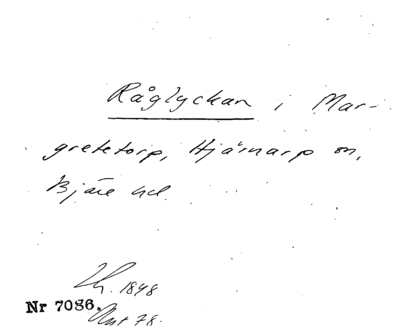 Råglyckan i Mar-
gretetorp, Hjärnarp sn,
Bjäre hd.
Lh. 1848
Nr 7086.
Ant 78.